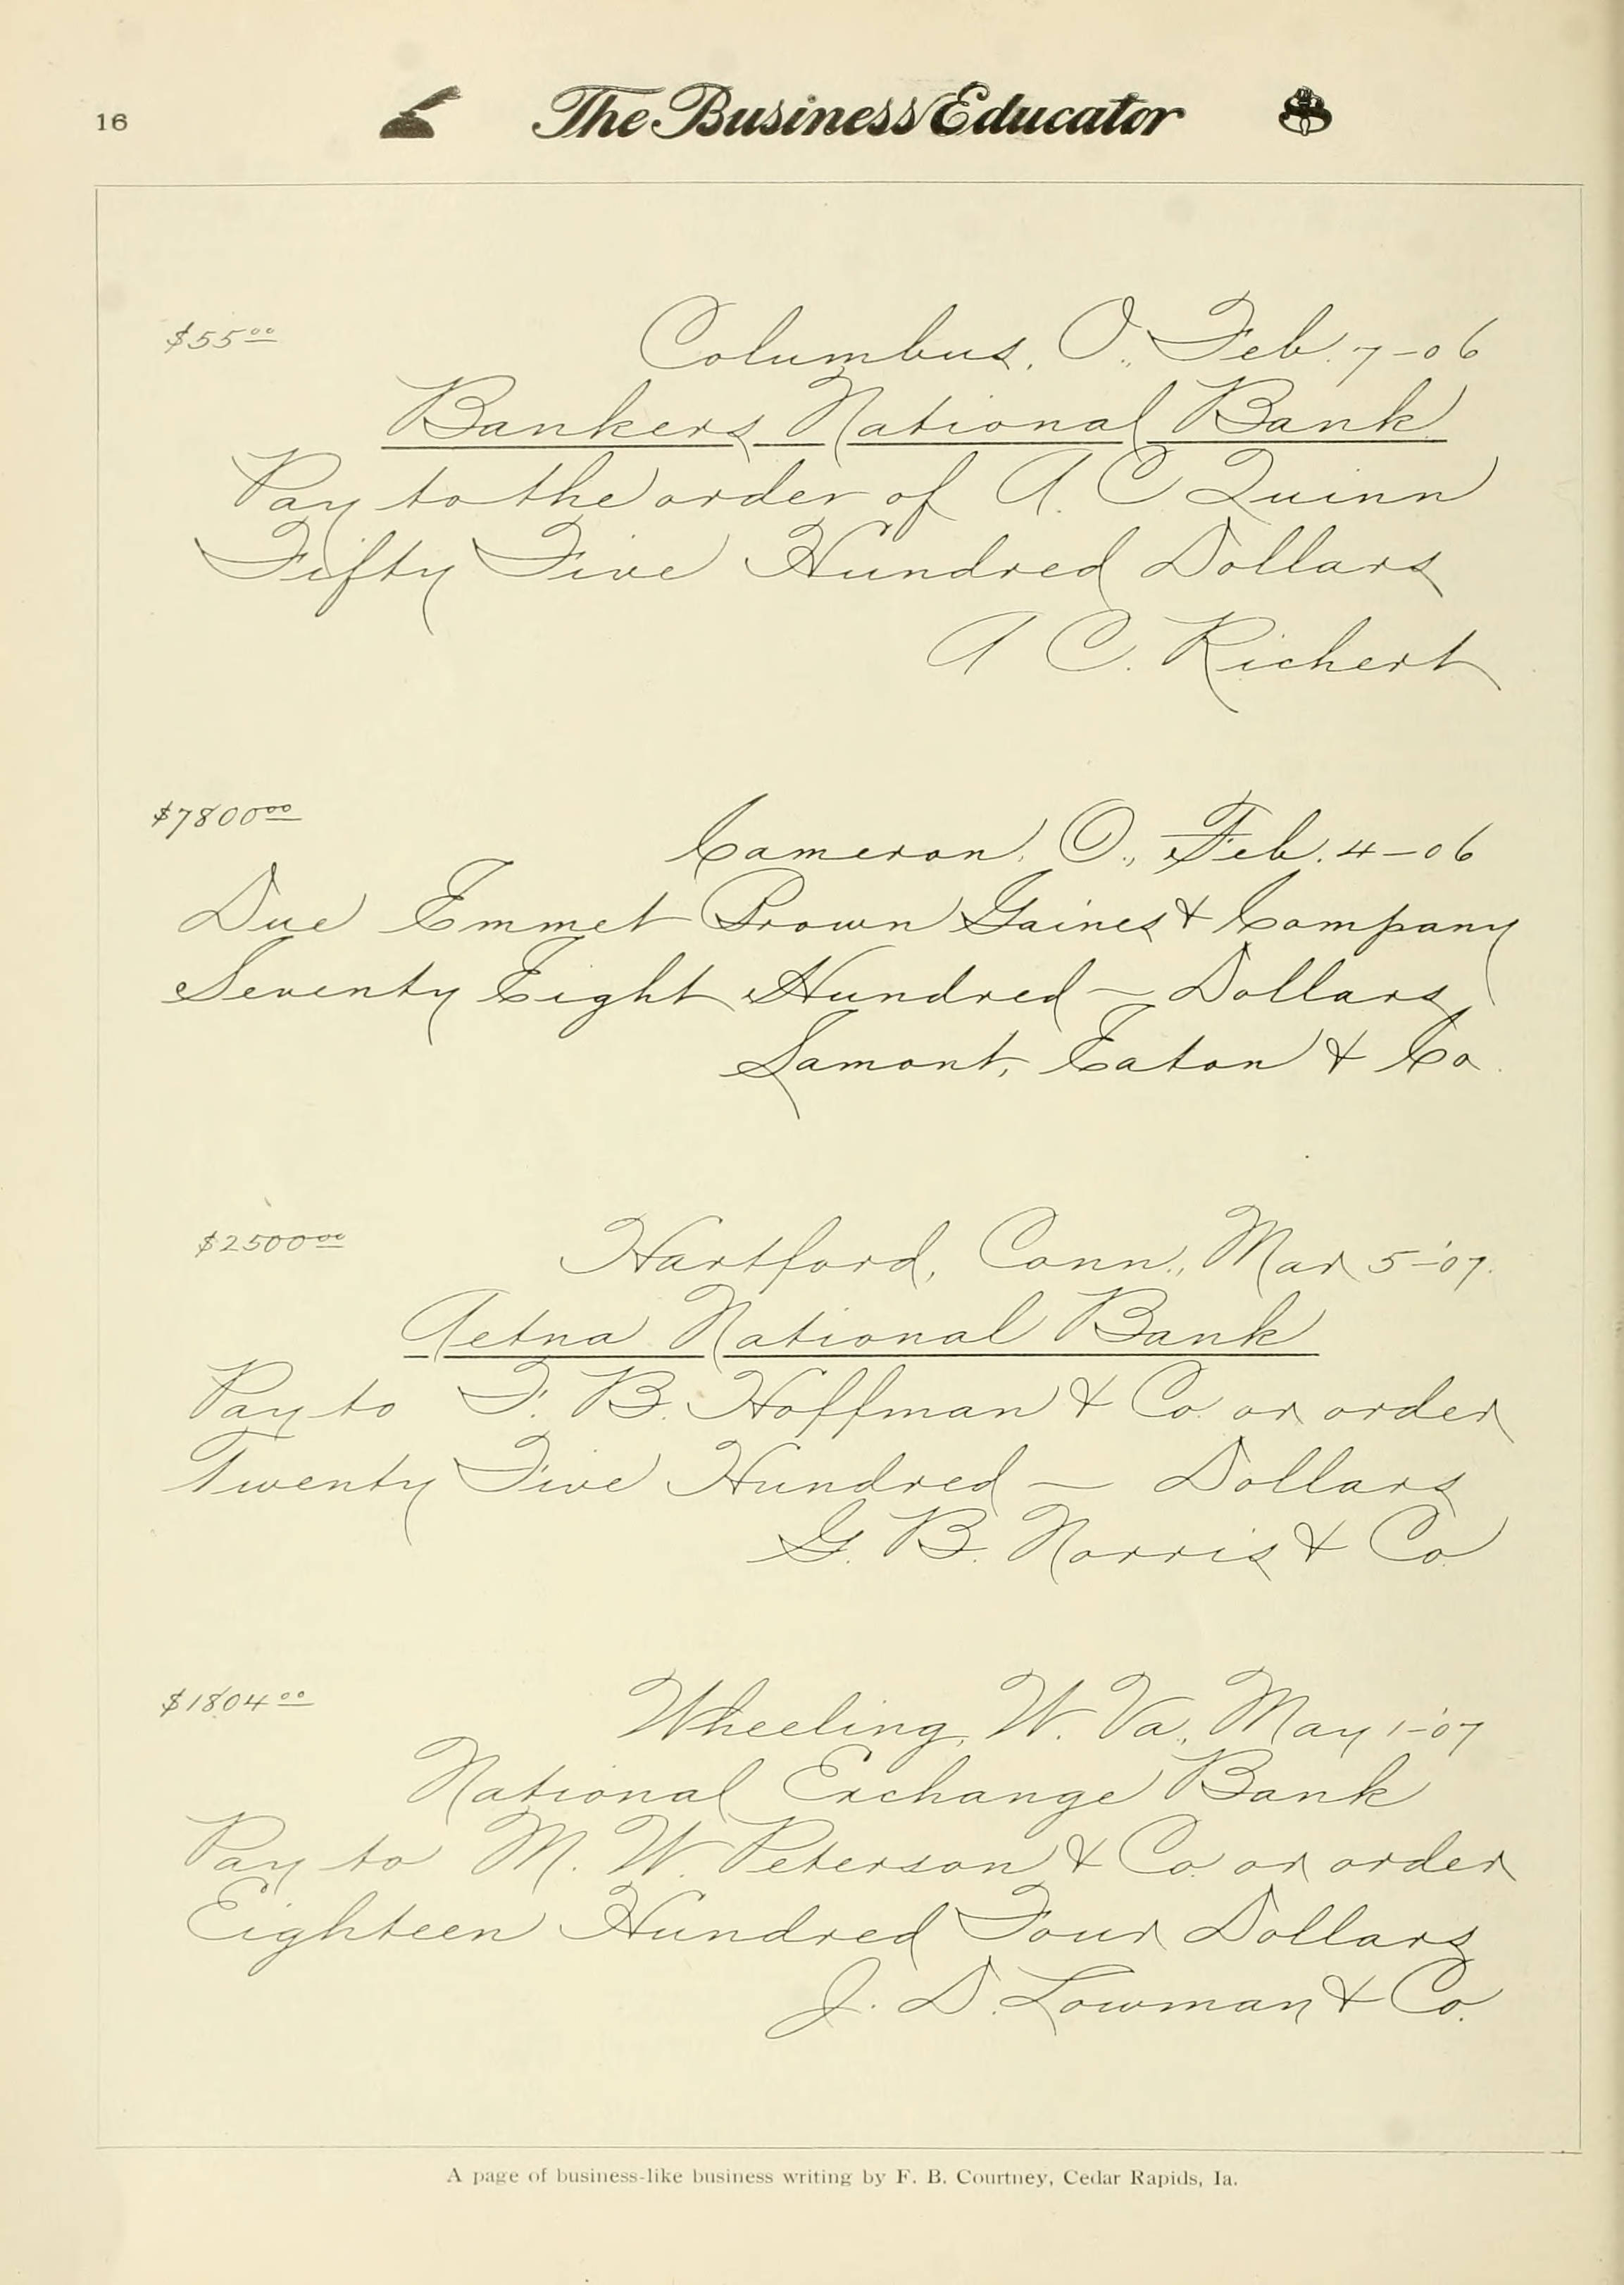 16
The Business Educator
$55 00
Columbus, O., Feb. 7-06
Bankers National Bank
Pay to the order of A. C. Quinn
Fifty Five Hundred Dollars
A C. Richert
$7800 00
Cameron, O., Feb. 4-06
Due Emmet Brown Gaines & Company
Seventy Eight Hundred — Dollars
Lamont, Eaton & Co.
$2500 00
Hartford, Conn., Mar 5-'07.
Aetna National Bank
Pay to F. B. Hoffman & Co. or order
Twenty Five Hundred — Dollars
G. B. Norris & Co.
$1804 00
Wheeling, W. Va., May 1-'07
National Exchange Bank
Pay to M. W. Peterson & Co. or order
Eighteen Hundred Four Dollars
J. D. Lowman & Co.
A page of business-like business writing by F. B. Courtney, Cedar Rapids, Ia.